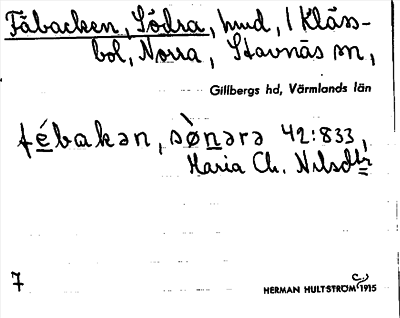 Fäbacken, Södra, hmd, / Kläss-
bol, Norra, Stavnäs sn,
Gillbergs hd, Värmlands län
fébakən, sònərə 42:833,
Maria Ch. Nilsdtr
7
HERMAN HULTSTRÖM 1915